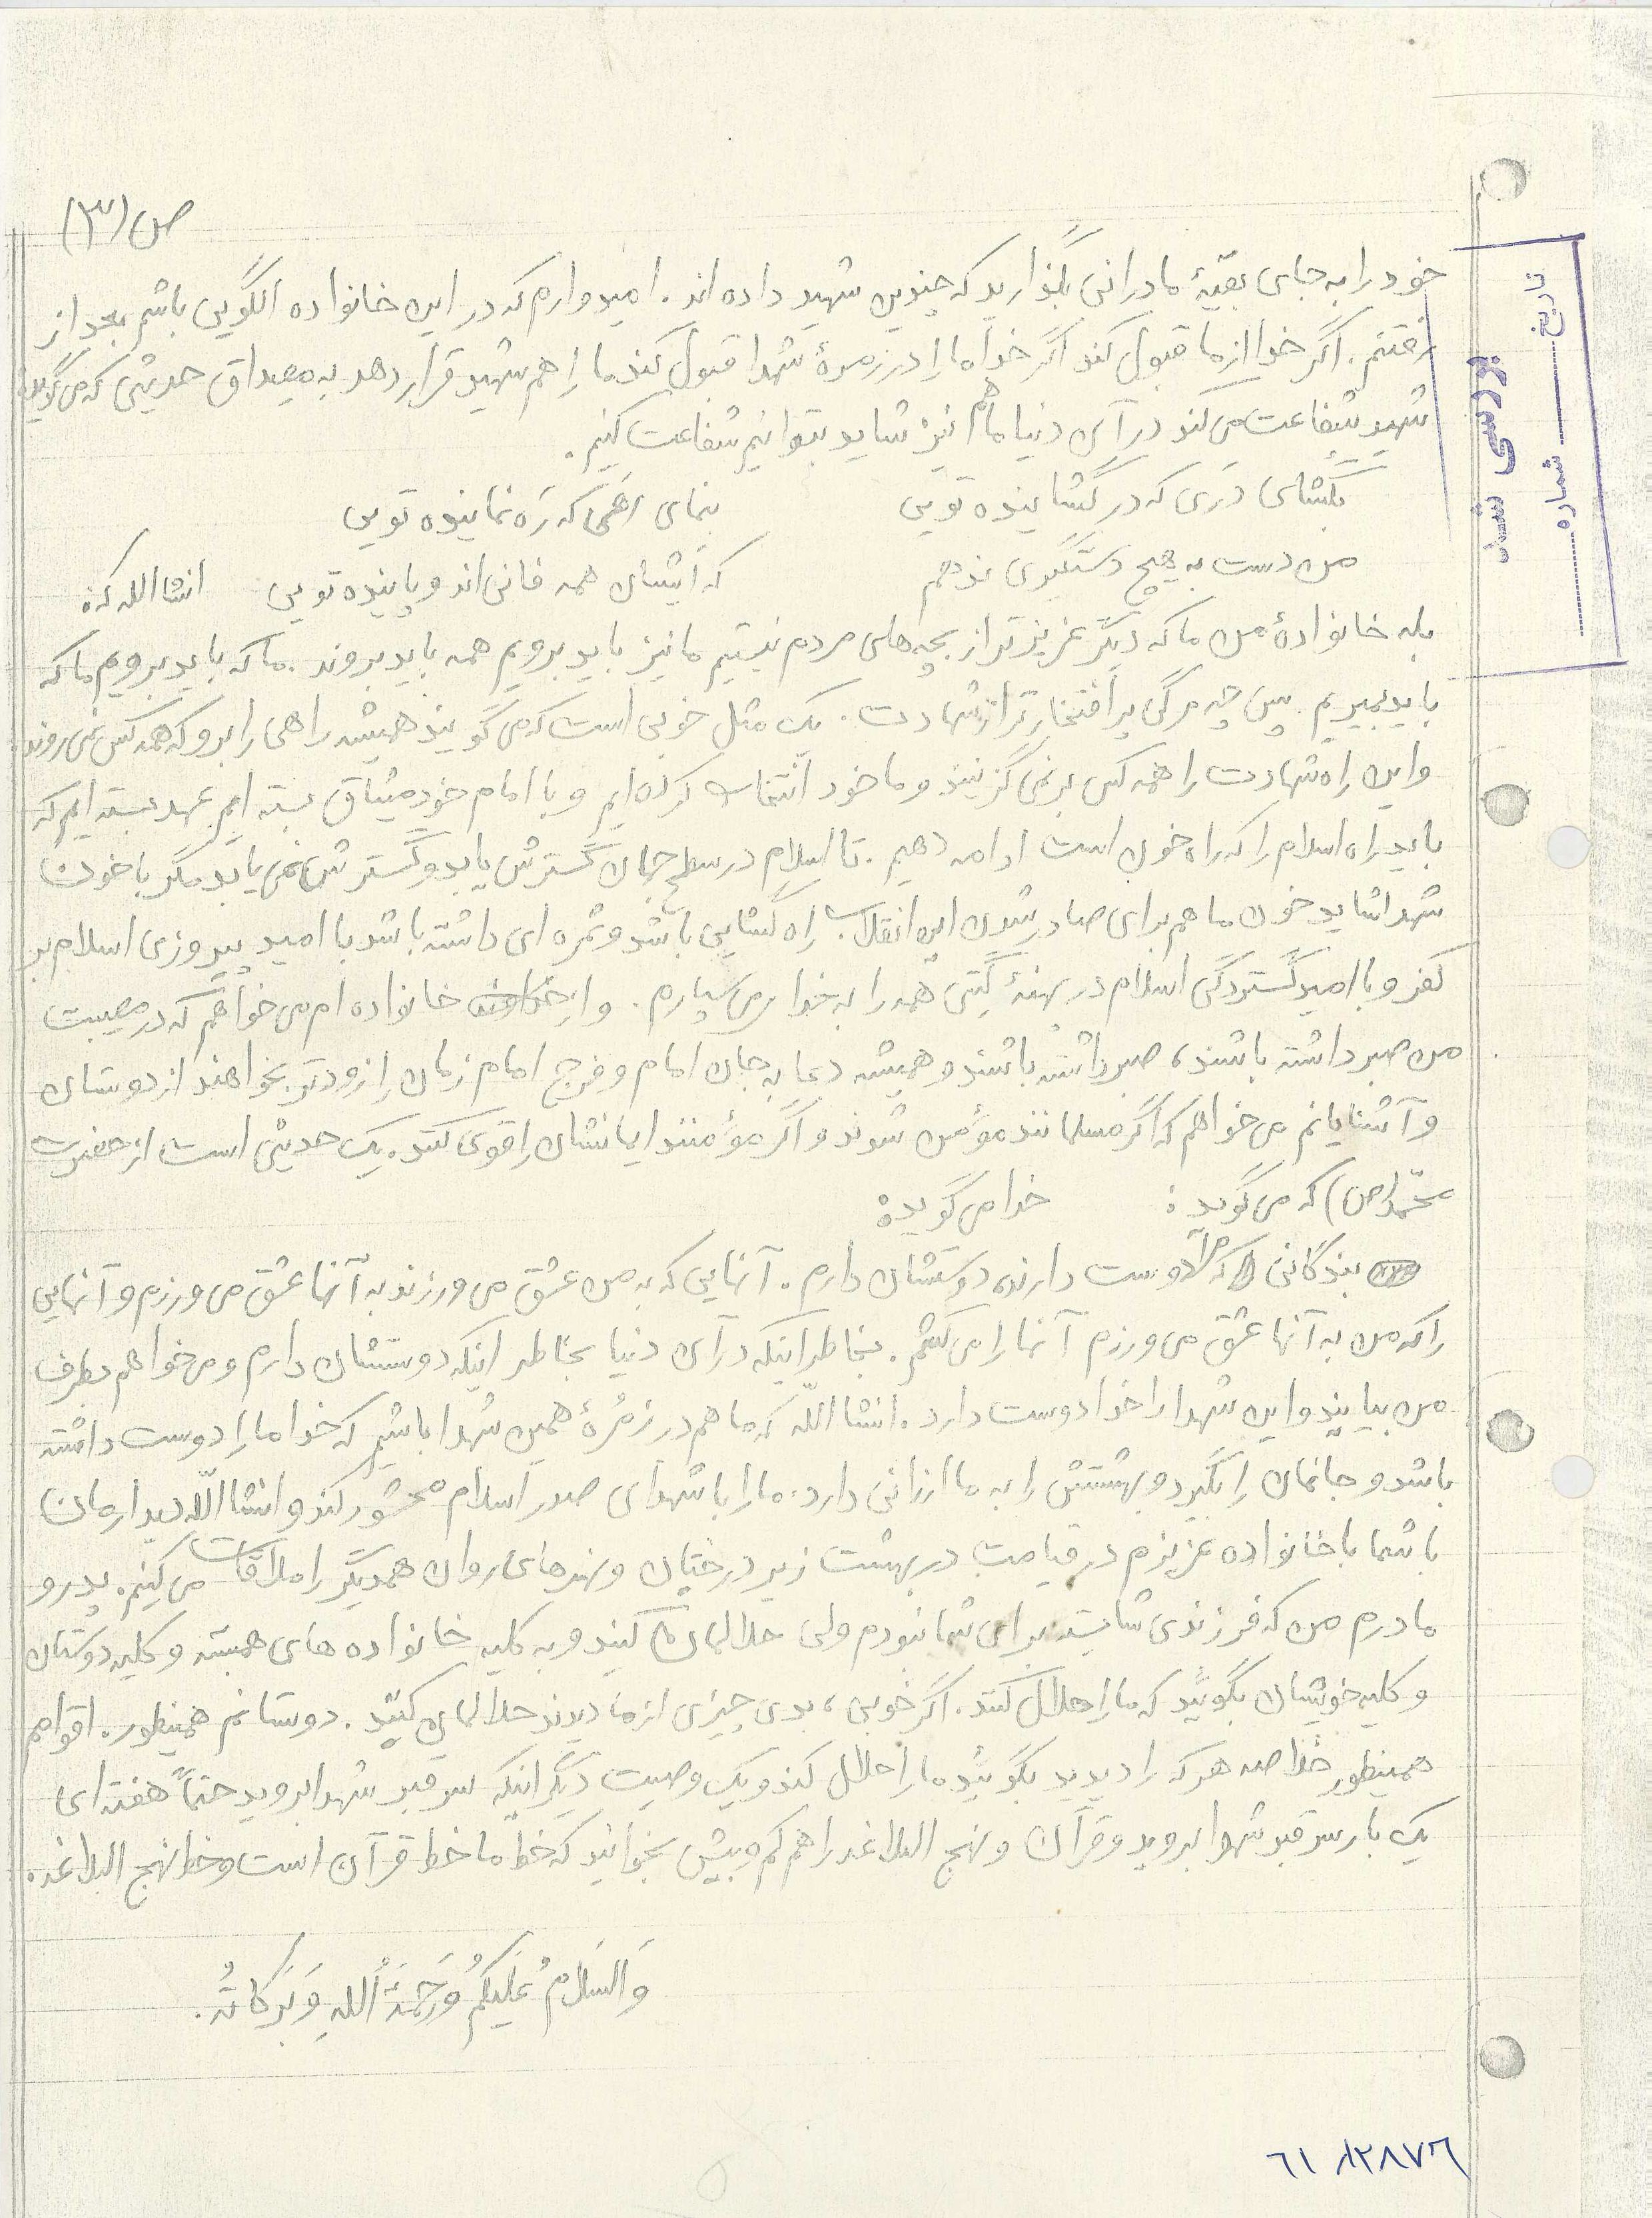 ص (۳)
خود را به جای بقیهٔ مادرانی بگذارید که چندین شهید داده اند. امیدوارم که در این خانواده الگویی باشم بعد از
رفتنم. اگر خدا از ما قبول کند اگر خدا ما را در زمرهٔ شهدا قبول کند ما را هم شهید قرار دهد به مصداق حدیثی که می گوید:
شهید شفاعت می کند در آن دنیا ما هم نیز شاید بتوانیم شفاعت کنیم.
بگشای دَری که در گشاینده تویی بنمای رَهی که رَه نماینده تویی
من دست به هیچ دستگیری ندهم که ایشان همه فانی اند و پاینده تویی انشاالله که:
بله خانوادهٔ من ما که دیگر عزیزتر از بچه های مردم نیستیم ما نیز باید برویم همه باید بروند. ما که باید برویم ما که
باید بمیریم پس چه مرگی پر افتخارتر از شهادت. یک مثل خوبی است که می گویند همیشه راهی را برو که همه کس نمی روند
و این راه شهادت را همه کس بر نمی گزینند و ما خود انتخاب کرده ایم و با امام خود میثاق بسته ایم عهد بسته ایم که
باید راه اسلام را که راه خون است ادامه دهیم. تا اسلام در سطح جهان گسترش یابد و گسترش نمی یابد مگر با خون
شهدا شاید خون ما هم برای صادر شدن این انقلاب راه گشایی باشد و ثمره ای داشته باشد با امید پیروزی اسلام بر
کفر و با امید گستردگی اسلام در پهنهٔ گیتی همه را به خدا می سپارم. و از خانواده ام می خواهم که در مصیبت
من صبر داشته باشند، صبر داشته باشند و همیشه دعا به جان امام و فرج امام زمان را زودتر بخواهند از دوستان
و آشنایانم می خواهم که اگر مسلمانند مؤمن شوند و اگر مؤمنند ایمانشان را قوی کنند. یک حدیثی است از حضرت
محمّد (ص) که می گوید: خدا می گوید:
بندگانی که مرا دوست دارند، دوستشان دارم. آنهایی که به من عشق می ورزند به آنها عشق می ورزم و آنهایی
را که من به آنها عشق می ورزم آنها را می کُشم. بخاطر اینکه در آن دنیا بخاطر اینکه دوستشان دارم و می خواهم بطرف
من بیایند و این شهدا را خدا دوست دارد. انشا اللّه که ما هم در زمُرهٔ همین شهدا باشیم که خدا ما را دوست داشته
باشد و جانمان را بگیرد و بهشتش را به ما ارزانی دارد. ما را با شهدای صدر اسلام محشور کند و انشا اللّه دیدارمان
با شما با خانواده عزیزم در قیامت در بهشت زیر درختان و نهرهای روان همدیگر را ملاقات می کنیم. پدر و
مادرم من که فرزندی شایسته برای شما نبودم ولی حلالمان کنید و به کلیه خانواده های همبسته و کلیه دوستان
و کلیه خویشان بگوئید که ما را حلال کنند. اگر خوبی، بدی چیزی از ما دیدند حلالمان کنند. دوستانم همینطور. اقوامم
همینطور خلاصه هر که را دیدید بگوئید ما را حلال کند و یک وصیت دیگر اینکه سر قبر شهدا بروید حتماً هفته ای
یک بار سر قبر شهدا بروید و قرآن و نهج البلاغه را هم کم و بیش بخوانید که خط ما خط قرآن است و خط نهج البلاغه.
وَالسَلامُ عَلَیکُمْ وَ رَحْمَةُ اللهِ وَ بَرَکاتُه.
تاریخ
شماره
بررسی شد
۶۱ ۸۲۸۷۶